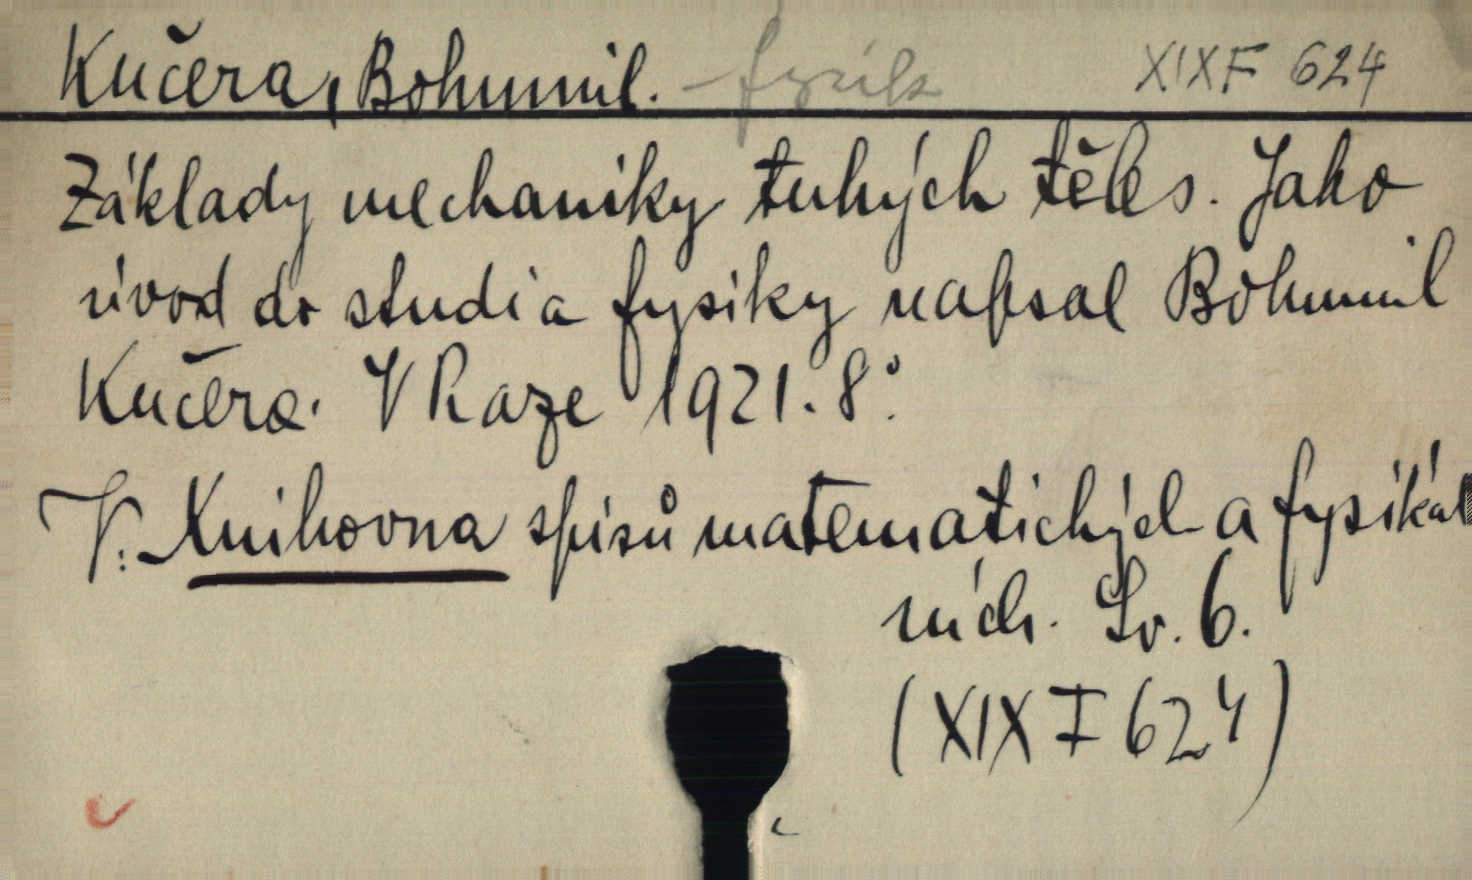 Kučera, Bohumil. - fysik XIX F 624
Základy mechaniky tuhých těles. Jako
úvod do studia fysiky napsal Bohumil
Kučera. V Praze 1921. 8°.
V: Knihovna spisů matematických a fysikál
ních. Sv. 6.
(XIX F 624)